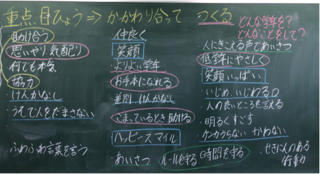 重点目ひょう⇒かかわり合って つくる
どんな学年を?
どんなことをして?
助け合う
思いやり、気配り
何でも本気
協力
けんかなし
うそで人をだまさない
ふわふわ言葉を言う
仲良く
笑顔
よりよい学年
お手本になれる
差別、けんかなし
こまっているとき助ける
ハッピースマイル
あいさつ
ルールを守る
時間を守る
人にきこえる声であいさつ
低学年にやさしく
笑顔いっぱい
いじめ、いじわる0
人の良いところを言える
明るくすごす
せきにんのある
行動